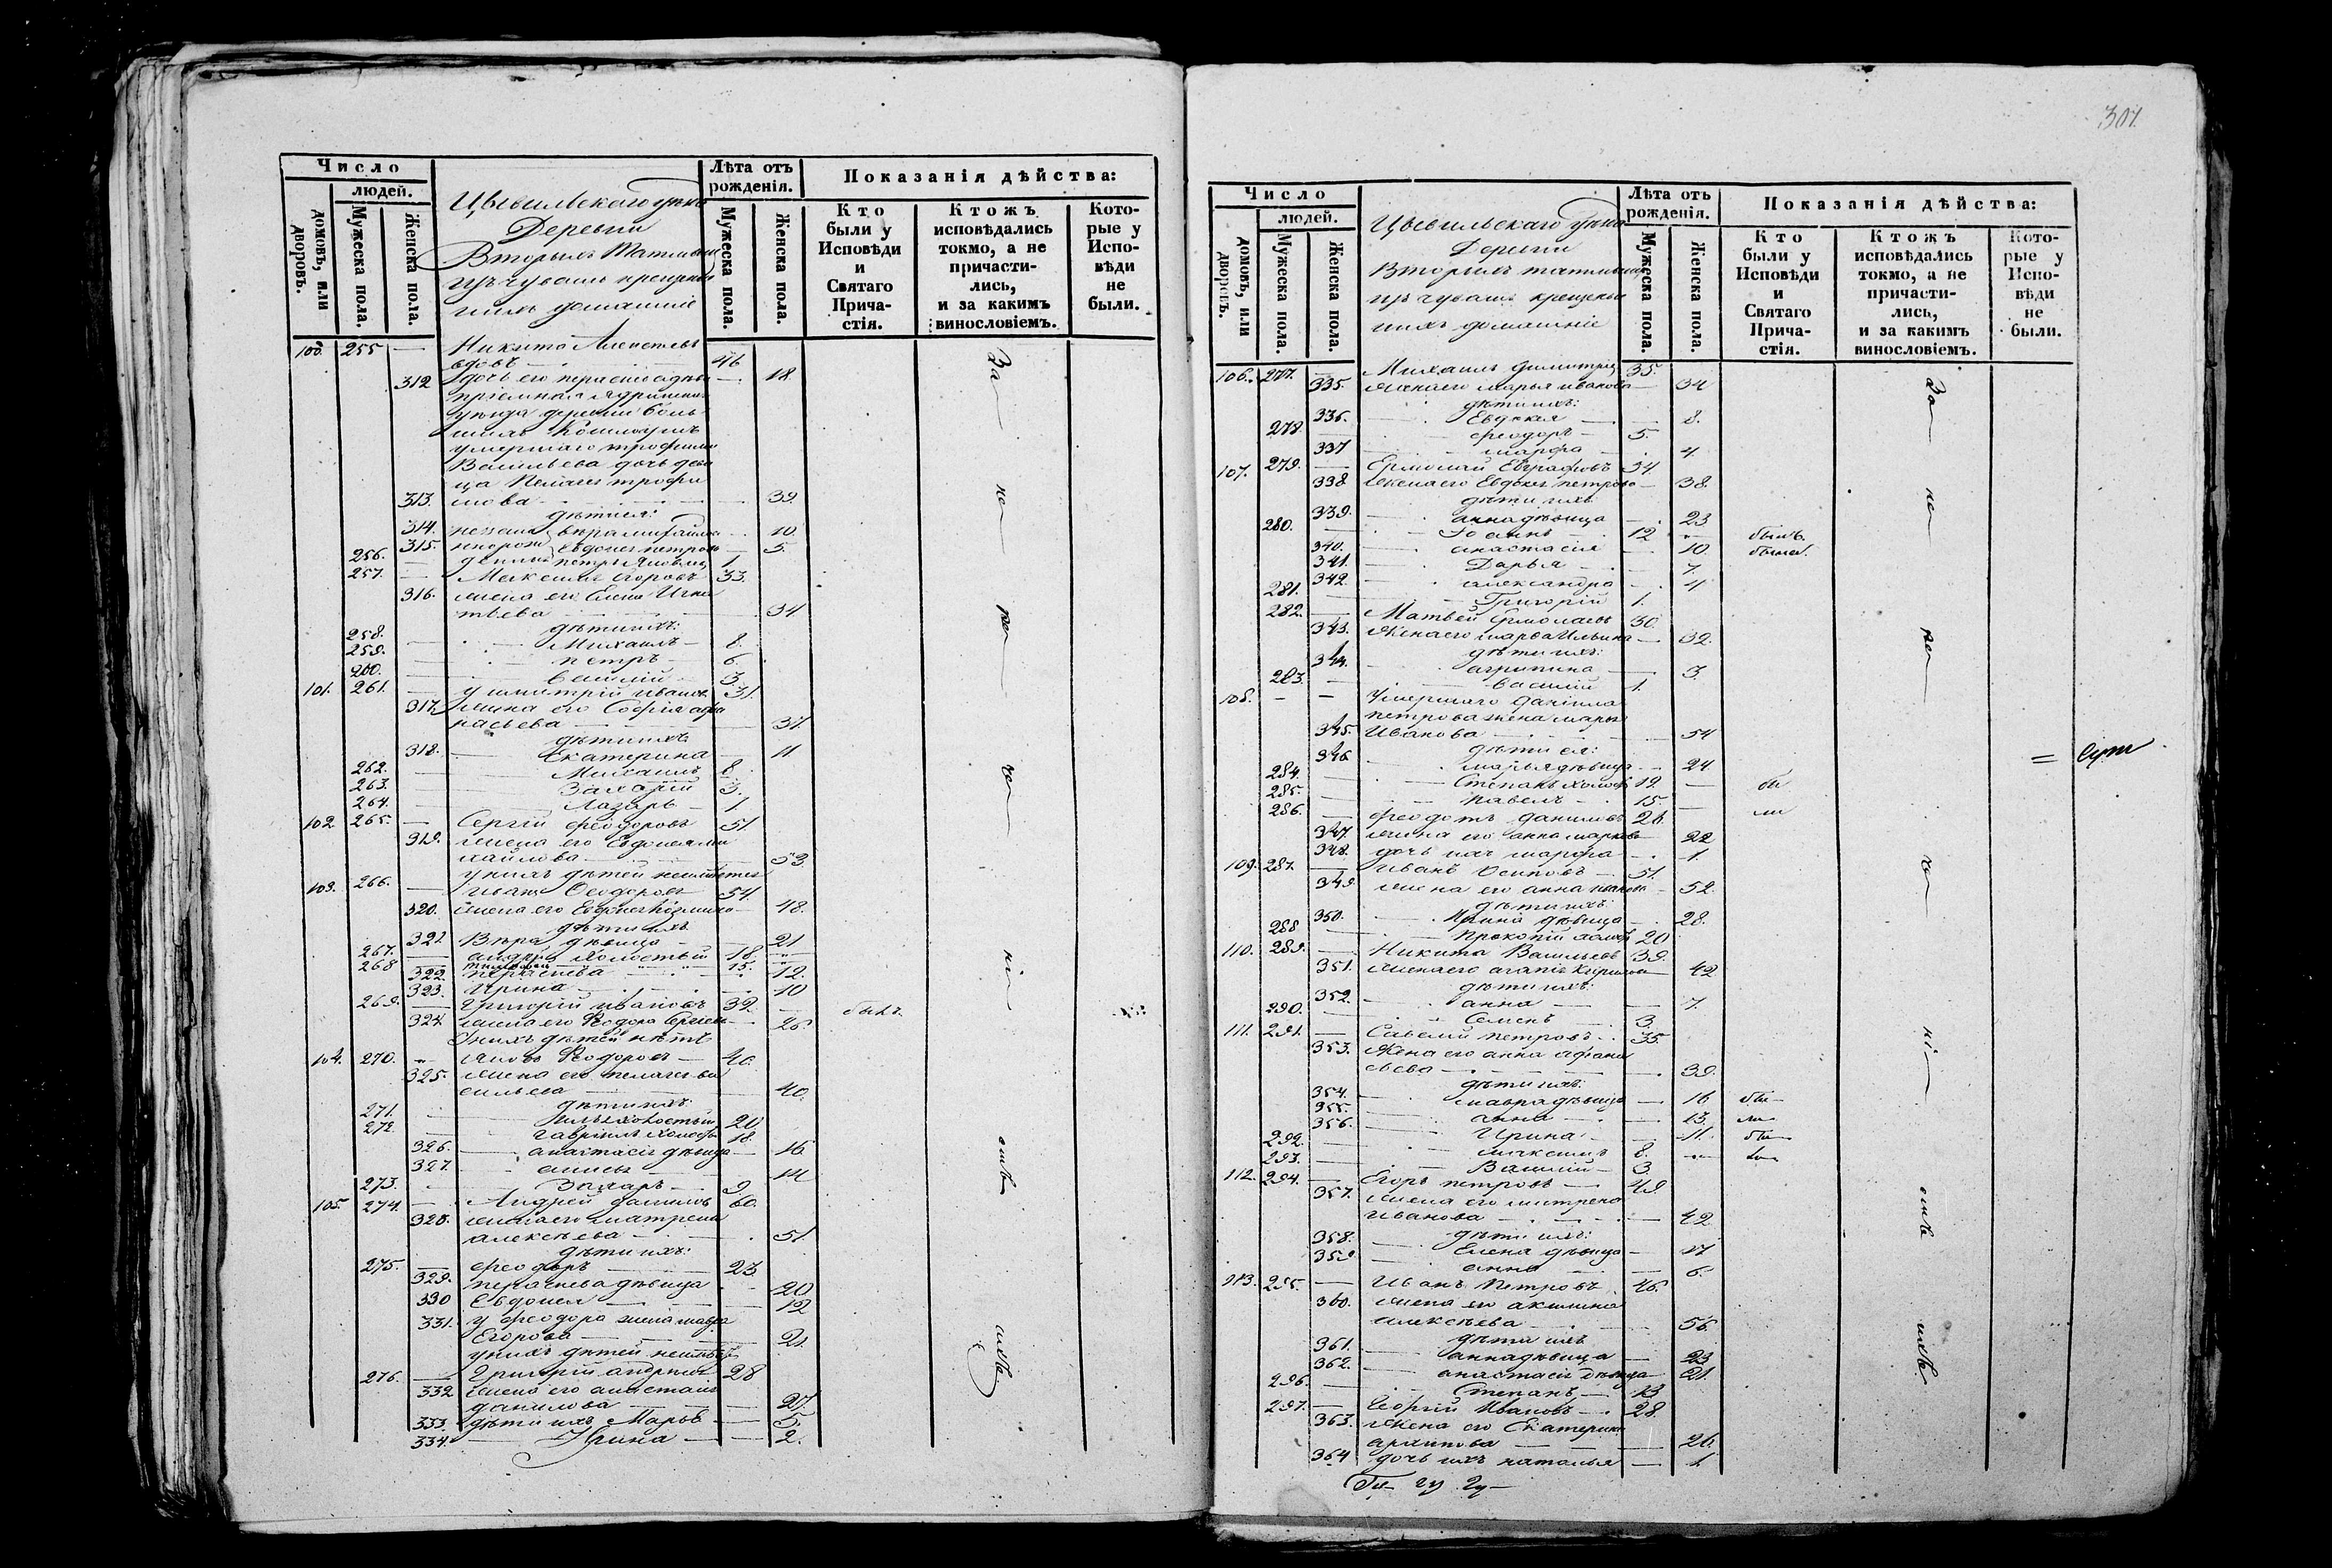 Число
людей.
домовъ, или дворовъ.
Мужеска пола.
Женска пола.
Цывильскаго уѣзда
Деревни
Вторыхъ
изъ чувашъ крещены
нихъ домашніе
Лѣта отъ рожденія.
Мужеска пола.
Женска пола.
Показанія дѣйства:
Кто были у Исповѣди и Святаго Причастія.
Ктожъ исповѣдались токмо, а не причастились, и за какимъ винословіемъ.
Которые у Исповѣди не были.
100. 255 — Никита
вдовъ — 46
312 дочь его — 18
уѣзда деревни боль
умершаго трофима
Васильева дочь деви
ца трофи
313. мова — 39.
дѣти ея:
314. 10.
315. Евдокія петрова — 5.
256. петръ 1
257. — Максимъ Егоровъ 33.
316. жена его Елена Игна
тьева — 34
дѣти ихъ:
258. — Михаилъ — 8.
259. — петръ — 6.
260. — василій — 3.
101. 261. — димитрій ивановъ 31.
317. жена его Софія афа
насьева — 37.
дѣти ихъ
318. — Екатерина — 11
262. — Михаилъ 8.
263. — Захарій 3.
264. — Лазарь — 1.
102 265. — Сергій феодоровъ 51
319. жена его Евдокія ми
хайлова — 53.
у нихъ дѣтей
103. 266. — иванъ Феодоровъ 54.
320. жена его Евдокія 48.
дѣти ихъ
321 Вѣра дѣвица — 21
267. — андрей холостый 18.
268 — 15.
322. 12
323. Ирина — 10
269. — Григорій ивановъ 32. былъ
324 жена его Феодора Сергѣева — 26
У нихъ дѣтей нѣтъ
104. 270. Яковъ Феодоровъ — 40.
325. жена его пелагея ва
сильева — 40.
дѣти ихъ:
271. холостый 20
272. — гавріилъ холостъ 18.
326. — анастасія дѣвица — 16
327. — 14
273. — Захаръ — 9.
105. 274. — Андрей даниловъ 60.
328. жена его матрена
алексѣева — 51
дѣти ихъ:
275. — феодоръ — 23
329. дѣвица — 20
330 Евдокія — 12
331. у феодора жена мавра
Егорова — 21.
у нихъ дѣтей
276. — Григорій андреевъ 28
332 жена его анастасія
данилова — 27.
333. дѣти ихъ Марья — 5.
334. — Ирина — 2.
За
не
отъ
301.
Число
людей.
домовъ, или дворовъ.
Мужеска пола.
Женска пола.
Цывильскаго уѣзда
Деревни
Вторыхъ
изъ чувашъ крещены
нихъ домашніе
Лѣта отъ рожденія.
Мужеска пола.
Женска пола.
Показанія дѣйства:
Кто были у Исповѣди и Святаго Причастія.
Ктожъ исповѣдались токмо, а не причастились, и за какимъ винословіемъ.
Которые у Исповѣди не были.
106. 277. — Михаилъ димитріевъ 35.
335. жена его марья иванова — 34
дѣти ихъ:
336. — Евдокія — 8.
278. — феодоръ — 5.
337 — марфа — 4.
107. 279. — Ермолай Евграфовъ 34.
338. жена его Евдокія петрова — 38.
дѣти ихъ:
339. — анна дѣвица — 23
280. — Іоаннъ — 12 былъ
340. — анастасія — 10. была
341. — Дарья — 7.
342. — александра — 4
281. — Григорій 1.
282. — Матвей Ермолаевъ 30.
343. жена его Ильина — 32.
дѣти ихъ:
344. — агрипина — 3.
283. — василій 1.
108. — — Умершаго даніила
петрова жена марья
345. Иванова — 54
дѣти ея:
346 — марья дѣвица — 24
284. — Степанъ холостъ 19. бы
285. — павелъ — 15.
286. — феодотъ даниловъ 26. ли
347. жена его анна маркова — 22
348. дочь ихъ марфа — 1.
109. 287. — Иванъ Осиповъ — 51.
349. жена его анна — 52.
дѣти ихъ:
350. — Ирина дѣвица — 28.
288 — прокопій холостъ 20
110. 289. — Никита Васильевъ 39.
351. жена его 42
дѣти ихъ:
352. — анна — 7.
290. — Семенъ 3.
111. 291. — Савелій петровъ — 35.
353. жена его анна афана
сьева — 39.
дѣти ихъ:
354. — мавра дѣвица — 16 бы
355. — анна — 13. ли
356. — Ирина — 11. бы
292. — максимъ 8.
293. — Василій — 3.
112. 294. — Егоръ петровъ — 49.
357. жена его матрена
Иванова — 42
дѣти ихъ:
358. — Елена дѣвица — 17
359. — анна — 6.
113. 295. — Иванъ петровъ 46.
360. жена его акилина
алексѣева — 56.
дѣти ихъ
361. — анна дѣвица — 23
362. — анастасія дѣвица — 21.
296. — Степанъ — 13
297. — Георгій Ивановъ — 28.
363. жена его Екатерина
архипова — 26.
364 дочь ихъ наталья — 1
За
не
отъ